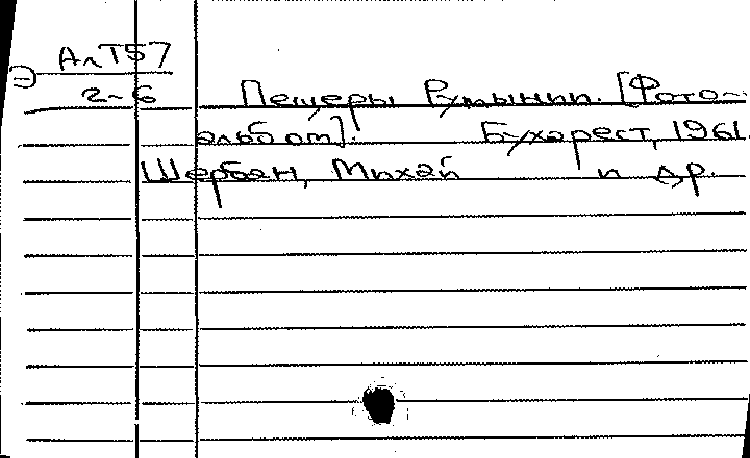 АлТ57
2-6
Пещеры Румынии. [Фото-
альбом]. Бухарест, 1961.
Щербан, Михай и др.